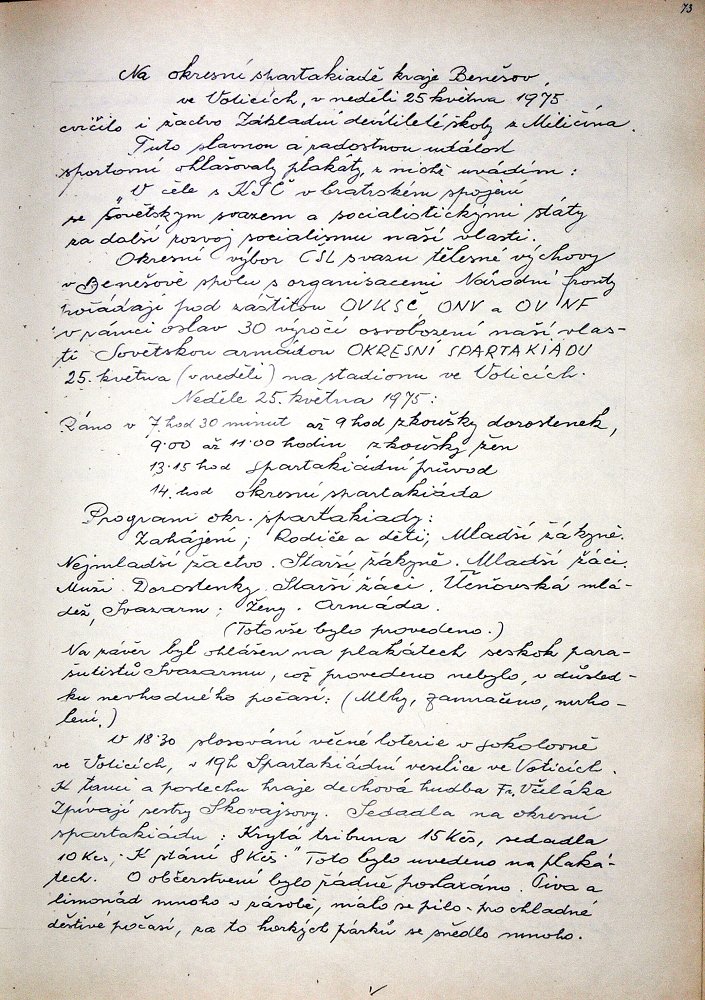 73
Na okresní spartakiadě kraje Benešov,
ve Voticích, v neděli 25 května 1975
cvičilo i žactvo Základní devítileté školy z Miličína.
Tuto slavnou a radostnou událost
sportovní ohlašovaly plakáty, z nichž uvádím:
"V čele s KSČ v bratrském spojení
se Sovětským svazem a socialistickými státy
za další rozvoj socialismu naší vlasti.
Okresní výbor ČSL svazu tělesné výchovy
v Benešově spolu s organisacemi Národní fronty
pořádají pod záštitou OVKSČ, ONV a OV NF
v rámci oslav 30 výročí osvobození naší vlas-
ti Sovětskou armádou OKRESNÍ SPARTAKIÁDU
25. května (v neděli) na stadionu ve Voticích.
Neděle 25. května 1975:
Ráno v 7 hod 30 minut až 9 hod zkoušky dorostenek,
9.00 až 11.00 hodin zkoušky žen
13.15 hod spartakiádní průvod
14. hod okresní spartakiáda
Program okr. spartakiady:
Zahájení; Rodiče a děti; Mladší žákyně.
Nejmladší žactvo. Starší žákyně. Mladší žáci.
Muži. Dorostenky. Starší žáci. Učňovská mlá-
dež, Svazarm; Ženy. Armáda.
(Toto vše bylo provedeno.)
Na závěr byl ohlášen na plakátech seskok para-
šutistů Svazarmu, což provedeno nebylo, v důsled-
ku nevhodného počasí: (Mlhy, zamračeno, mrho-
lení.)
V 18.30 slosování věcné loterie v sokolovně
ve Voticích, v 19h Spartakiádní veselice ve Voticích.
K tanci a poslechu hraje dechová hudba Fr. Včeláka
Zpívají sestry Skovajsovy. Sedadla na okresní
spartakiádu: Krytá tribuna 15 Kčs, sedadla
10 Kčs, K stání 8 Kčs." Toto bylo uvedeno na plaká-
tech. O občerstvení bylo řádně postaráno. Piva a
limonád mnoho v zásobě, málo se pilo - pro chladné
deštivé počasí, za to horkých párků se snědlo mnoho.